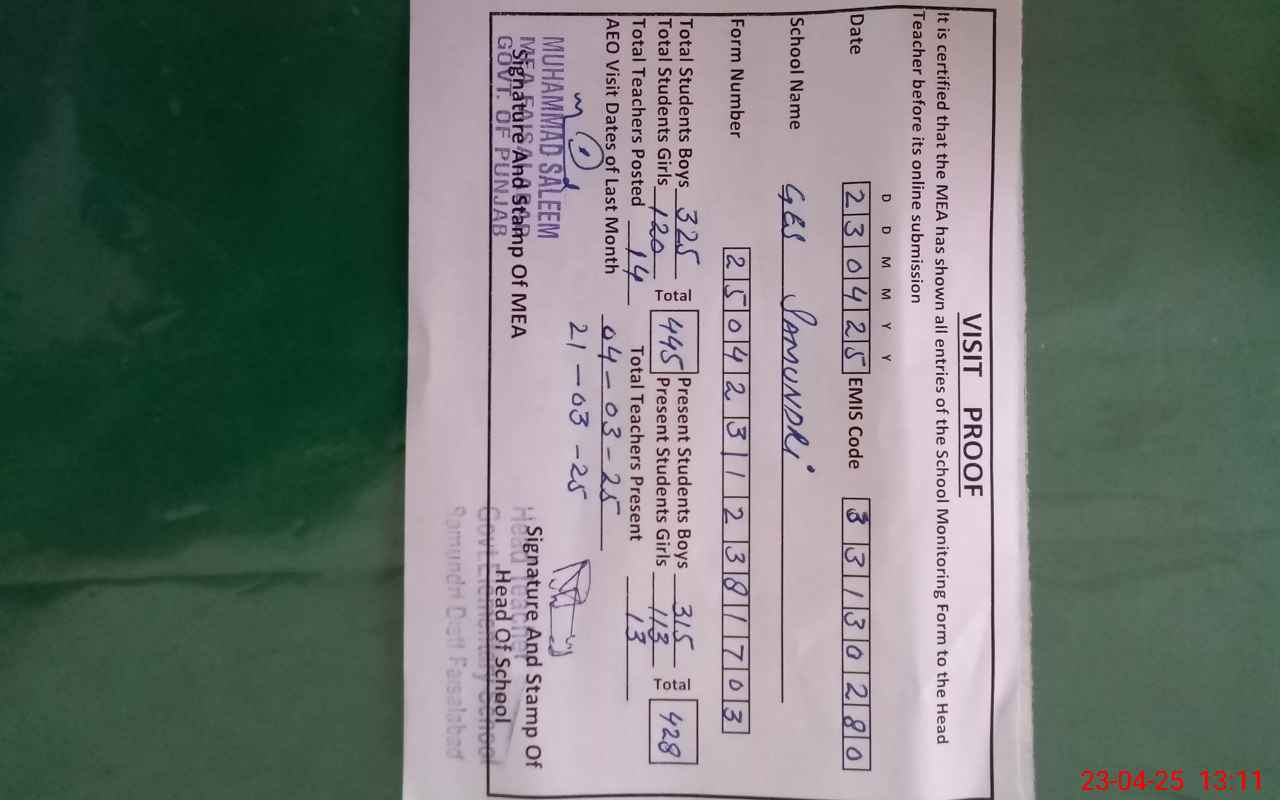 VISIT PROOF
It is certified that the MEA has shown all entries of the School Monitoring Form to the Head
Teacher before its online submission
D D M M Y Y
Date 230425 EMIS Code 33130280
School Name GES SAMUNDRI
Form Number 25042312381703
Total Students Boys 325 Present Students Boys 315
Total 445 Total 428
Total Students Girls 120 Present Students Girls 113
Total Teachers Posted 14 Total Teachers Present 13
AEO Visit Dates of Last Month 04-03-25
21-03-25
MUHAMMAD SALEEM
MEA FAISALABAD
GOVT. OF PUNJAB
Signature And Stamp Of MEA
Signature And Stamp Of
Head Of School
Head Teacher
Govt Elementary School
Samundri Distt Faisalabad
23-04-25 13:11